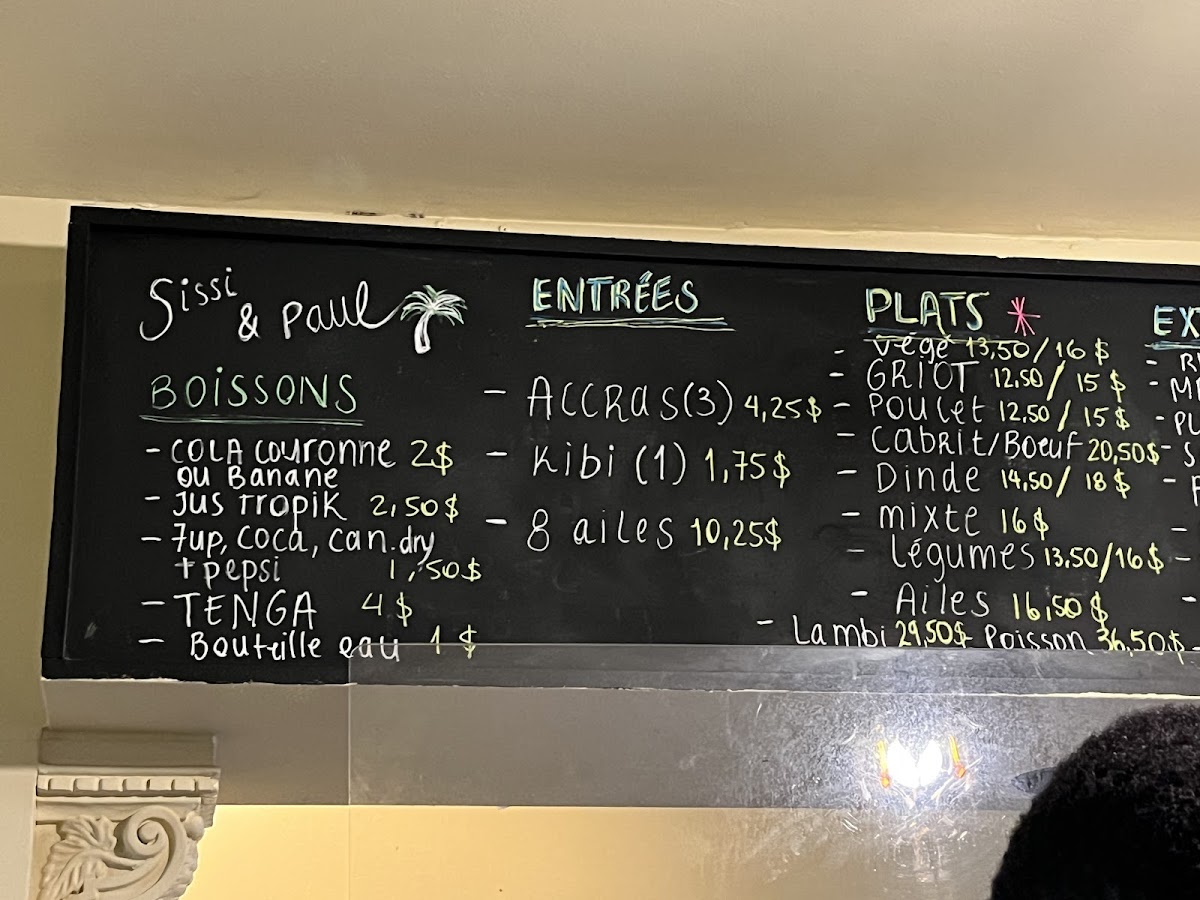 Sissi
& Paul
BOISSONS
- COLA COURONNE 2$
OU BANANE
- JUS TROPIK 2,50$
- 7up, COCA, can.dry
+ pepsi 1,50$
- TENGA 4$
- Bouteille eau 1$
ENTRÉES
- ACCRAS(3) 4,25$
- Kibi (1) 1,75$
- 8 ailes 10,25$
PLATS *
- végé 13,50/16$
- GRIOT 12,50/15$
- Poulet 12,50/15$
- Cabrit/Boeuf 20,50$
- Dinde 14,50/18$
- mixte 16$
- Légumes 13,50/16$
- Ailes 16,50$
- Lambi 29,50$ - Poisson 36,50$